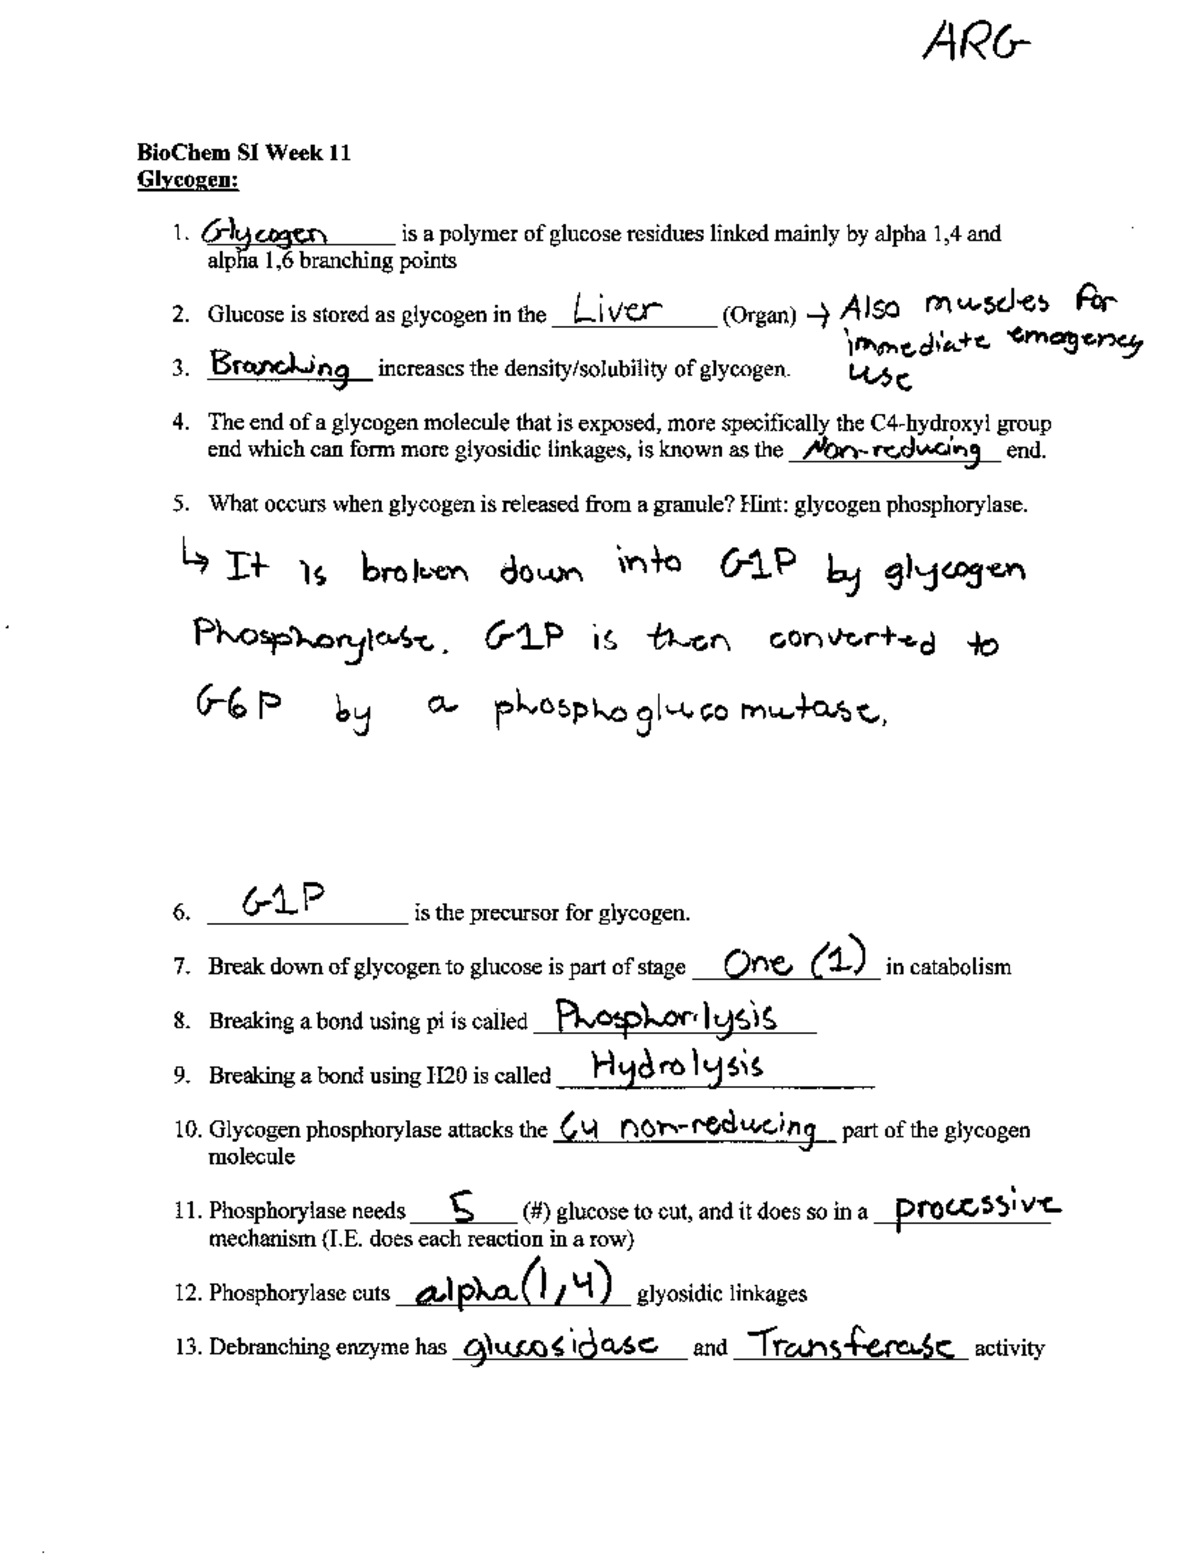 ARG
BioChem SI Week 11
Glycogen:
1. Glycogen is a polymer of glucose residues linked mainly by alpha 1,4 and
alpha 1,6 branching points
2. Glucose is stored as glycogen in the Liver (Organ) → Also muscles for
immediate emergency
use
3. Branching increases the density/solubility of glycogen.
4. The end of a glycogen molecule that is exposed, more specifically the C4-hydroxyl group
end which can form more glyosidic linkages, is known as the Non-reducing end.
5. What occurs when glycogen is released from a granule? Hint: glycogen phosphorylase.
↳ It is broken down into G1P by glycogen
Phosphorylase. G1P is then converted to
G6P by a phosphoglucomutase.
6. G1P is the precursor for glycogen.
7. Break down of glycogen to glucose is part of stage One (1) in catabolism
8. Breaking a bond using pi is called Phosphorilysis
9. Breaking a bond using H20 is called Hydrolysis
10. Glycogen phosphorylase attacks the C4 non-reducing part of the glycogen
molecule
11. Phosphorylase needs 5 (#) glucose to cut, and it does so in a processive
mechanism (I.E. does each reaction in a row)
12. Phosphorylase cuts alpha(1,4) glyosidic linkages
13. Debranching enzyme has glucosidase and Transferase activity